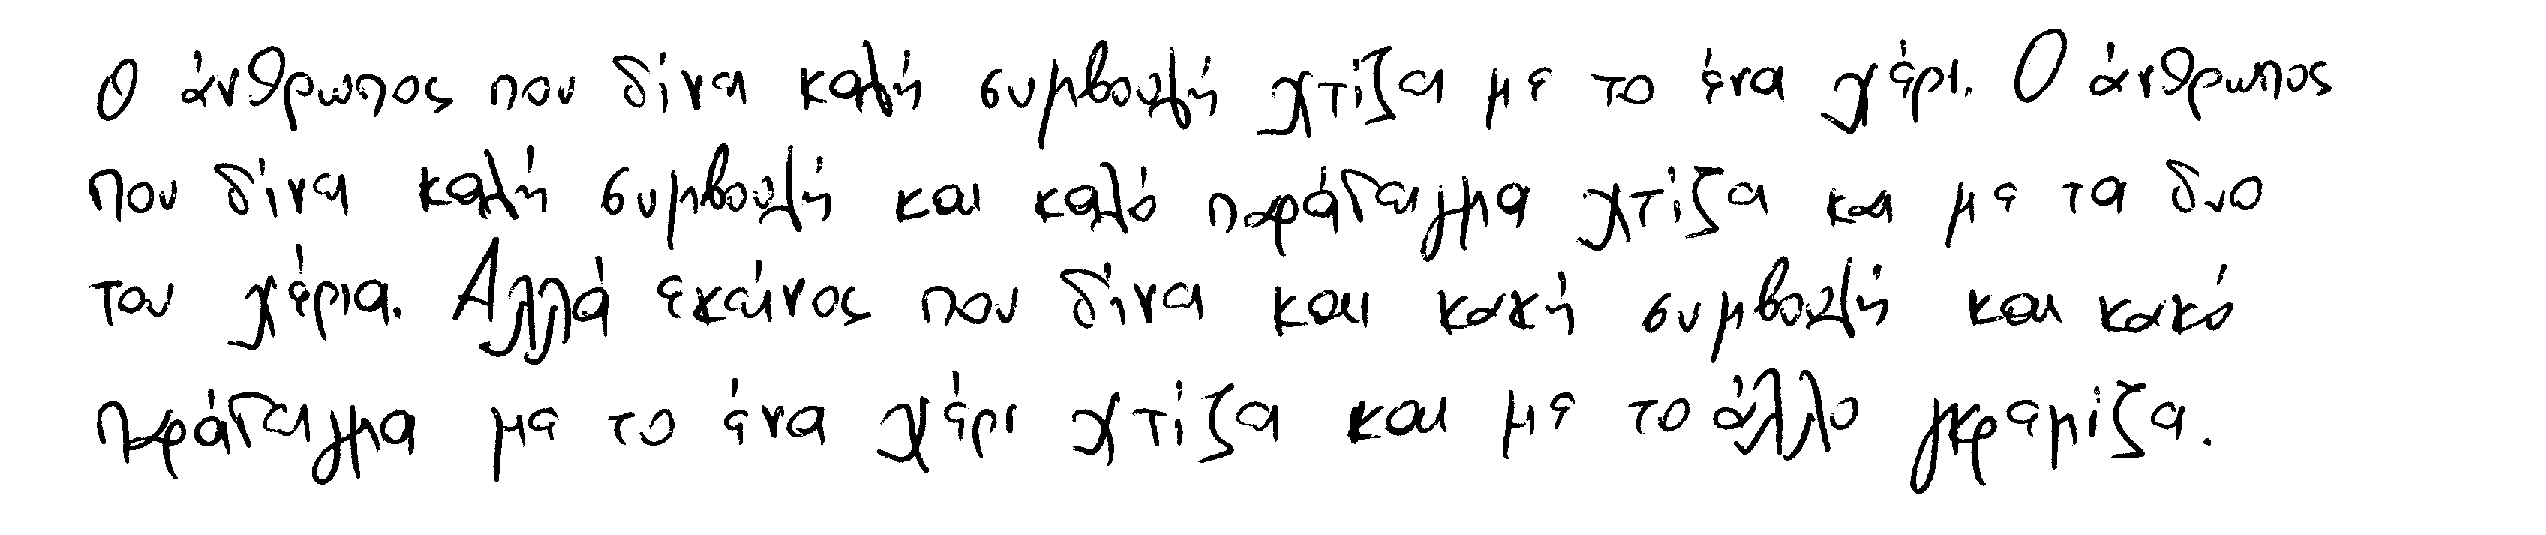 Ο άνθρωπος που δίνει καλή συμβουλή χτίζει με το ένα χέρι. Ο άνθρωπος
που δίνει καλή συμβουλή και καλό παράδειγμα χτίζει και με τα δυο
του χέρια. Αλλά εκείνος που δίνει και κακή συμβουλή και κακό
παράδειγμα με το ένα χέρι χτίζει και με το άλλο γκρεμίζει.